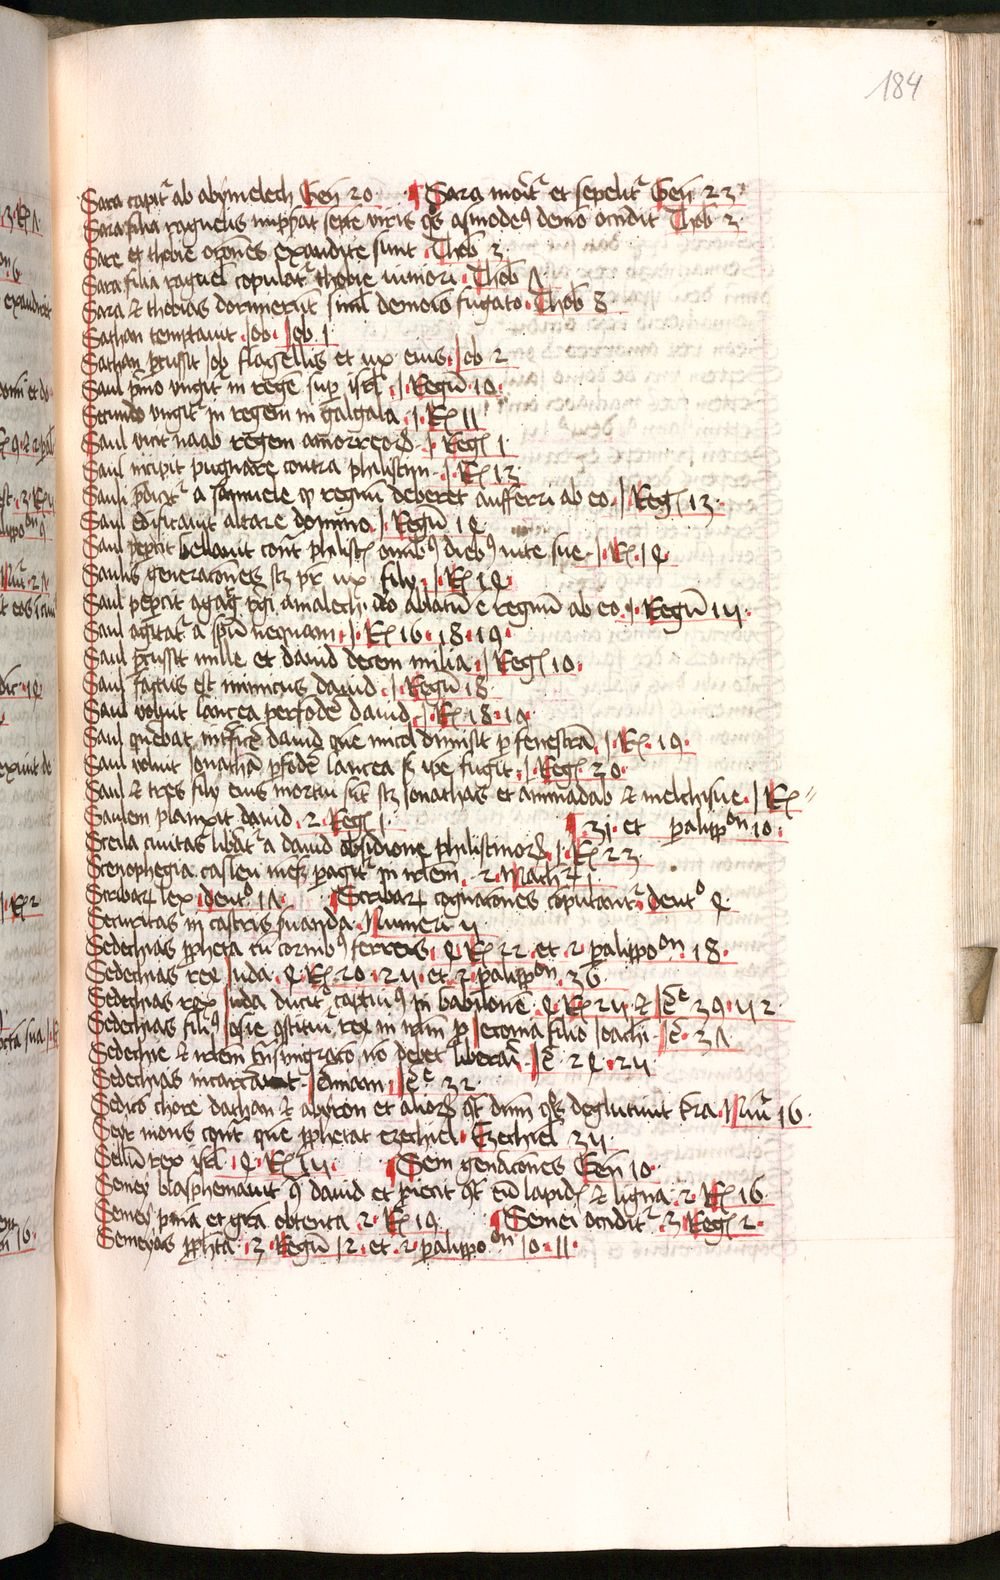 184
Sara capit᷑ ab abymelech Gen̄ 20 · ¶ Sara morit᷑ et sepelit᷑ Gen̄ 23
Sara filia raguelis nuppat septē viris q̄s asmodeꝰ demō occidit Thob̄ 3
Sare et thobie or̄ones exaudite sunt · Thob̄ 3
Sara filia raguel copulat᷑ thobie iuniori · Thob̄ 7
Sara ⁊ thobias dormierūt simul demoīo fugato · Thob̄ 8
Sathan temptauit Iob · Iob 1
Sathan p̄cussit Iob flagellis et ux̄ eius · Iob 2
Saul p̄mo vngit᷑ in regē sup̄ isrl̄ · 1 · Regū 10 ·
Secundo vngit᷑ in regem in galgala · 1 · Rꝫ 11
Saul vicit naab regem amorreorꝝ · 1 · Regꝫ 1 ·
Saul incipit pugnare contra philistijm · 1 · Rꝫ 13
Saul p̄dicit᷑ a samuele ꝙ regnū deberet aufferri ab eo · 1 Regꝫ 13 ·
Saul edificauit altare domino · 1 · Regū 14
Saul bellauit cont᷑ philistꝫ omībꝰ diebꝰ vite sue · 1 · Rꝫ · 14
Saulis generacōnes scꝫ pr̄ ux̄ filij · 1 · Rꝫ 14 ·
Saul pepercit agag regi amalech · iō ablatū ē regnū ab eo · 1 · Regū 15 ·
Saul agitat᷑ a sp̄u nequam · 1 · Rꝫ 16 · 18 · 19 ·
Saul p̄cussit mille et dauid decem milia · 1 Regꝫ 10 ·
Saul factus est inimicus dauid · 1 Regū 18
Saul voluit lancea perfodē dauid · 1 · Rꝫ 18 · 19 ·
Saul querebat int̄ficē dauid que micol dimisit p̄ fenestrā · 1 · Rꝫ · 19 ·
Saul voluit Ionathā p̄fodē lancea sꝫ ip̄e fugit · 1 · Regꝫ 20 ·
Saul ⁊ tres filij eius mortui sūt scꝫ Ionathas et aminadab ⁊ melchisue · 1 Rꝫ
¶ 31 · et paralippᵒⁿ 10 ·
Saulem planxit dauid · 2 · Regꝫ 1 ·
Sceila ciuitas lib̄at᷑ a dauid obsidione philistinorꝝ · 1 · Rꝫ 23 ·
Scenophegia casleu mēs̄ pagit᷑ in ir̄lem · 2 · Mach᷑ 1 ·
Scribarꝝ lex deut̊ 17 · ¶ Scribarꝝ cognacōnes coputant᷑ deut̊ 4
Securitas in castris s̄uanda · Numeri 5
Sedechias p̄pheta cū cornibꝰ ferreis · 4 Rꝫ 22 · et · 2 paralippoᵒⁿ 18 ·
Sedechias rex Iuda · 4 Rꝫ 20 · 25 · et · 2 paralippᵒⁿ · 36
Sedechias rex Iuda ducit᷑ captiuꝰ in babiloniē · 4 Rꝫ 25 ⁊ Ieᵉ 39 · 52
Sedechias filiꝰ Iosie ꝯstituit᷑ rex in ir̄lm p̄ Iecōnia filio Ioachī · Ie · 37
Sedechie ⁊ ir̄lem t̄nsmigracō nō debet liberari · Ie · 24 · 25
Sedechias incarcerauit Ieremiam · Ieᵉ 32 ·
Sedicō chore dathan ⁊ abyron et aliorꝝ ꝯt᷑ dnm̄ q̄s deglutiuit t̄ra Nūi 16 ·
Seyr mons cont᷑ que p̄phetat ezechiel · Ezechiel 35 ·
Sellū rex isrl̄ · 4 · Rꝫ 15 · ¶ Sem gen̄acōnes Gen̄ 10 ·
Semey blasphemauit ꝯ̄ dauid et p̄iecit ꝯt᷑ eū lapidꝫ ⁊ ligna · 2 · Rꝫ 16 ·
Semey p̄nīa et grā obtenta · 2 · Rꝫ 19 · ¶ Semei occidit᷑ · 3 Regꝫ 2 ·
Semeyas p̄pheta · 3 · Regū 12 · et · 2 · paralippoᵒⁿ 10 · 11 ·